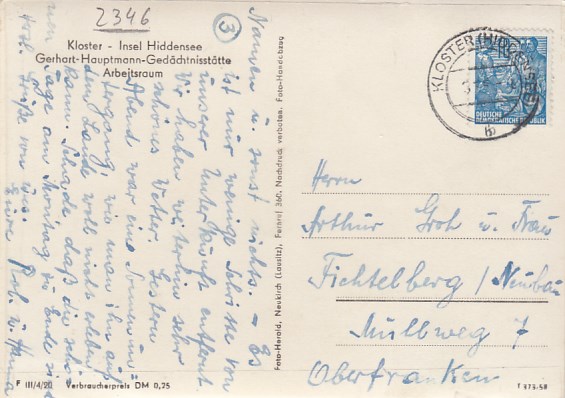 2346
3
Kloster - Insel Hiddensee
Gerhart-Hauptmann-Gedächtnisstätte
Arbeitsraum
Namen u. sonst nichts. – Es
ist nur wenige Schritte von
unserer Unterkunft entfernt
Wir haben weiterhin sehr
schönes Wetter. Gestern
Abend war ein Sonnenun-
tergang, wie man ihn auf
dem Lande wohl nicht erleben
kann. Schade daß die schönen
Tage am Montag zu Ende sind
Grüße von uns.
Eure
F III/4/20 Verbraucherpreis DM 0,25
Foto-Herold, Neukirch (Lausitz), Fernruf 360, Nachdruck verboten. Foto-Handabzug
KLOSTER (HIDDENSEE)
b
DEUTSCHE
DEMOKRATISCHE REPUBLIK
Herrn
Arthur Groh u. Frau
Fichtelberg / Neubau
Müllweg 7
Oberfranken